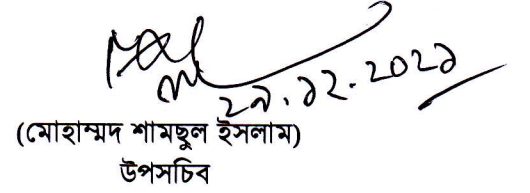 ২৯.১২.২০২১
(মোহাম্মদ শামছুল ইসলাম)
উপসচিব